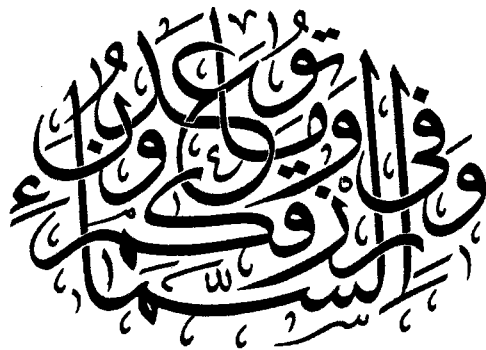 وَفِي السَّمَاءِ رِزْقُكُمْ وَمَا تُوعَدُونَ